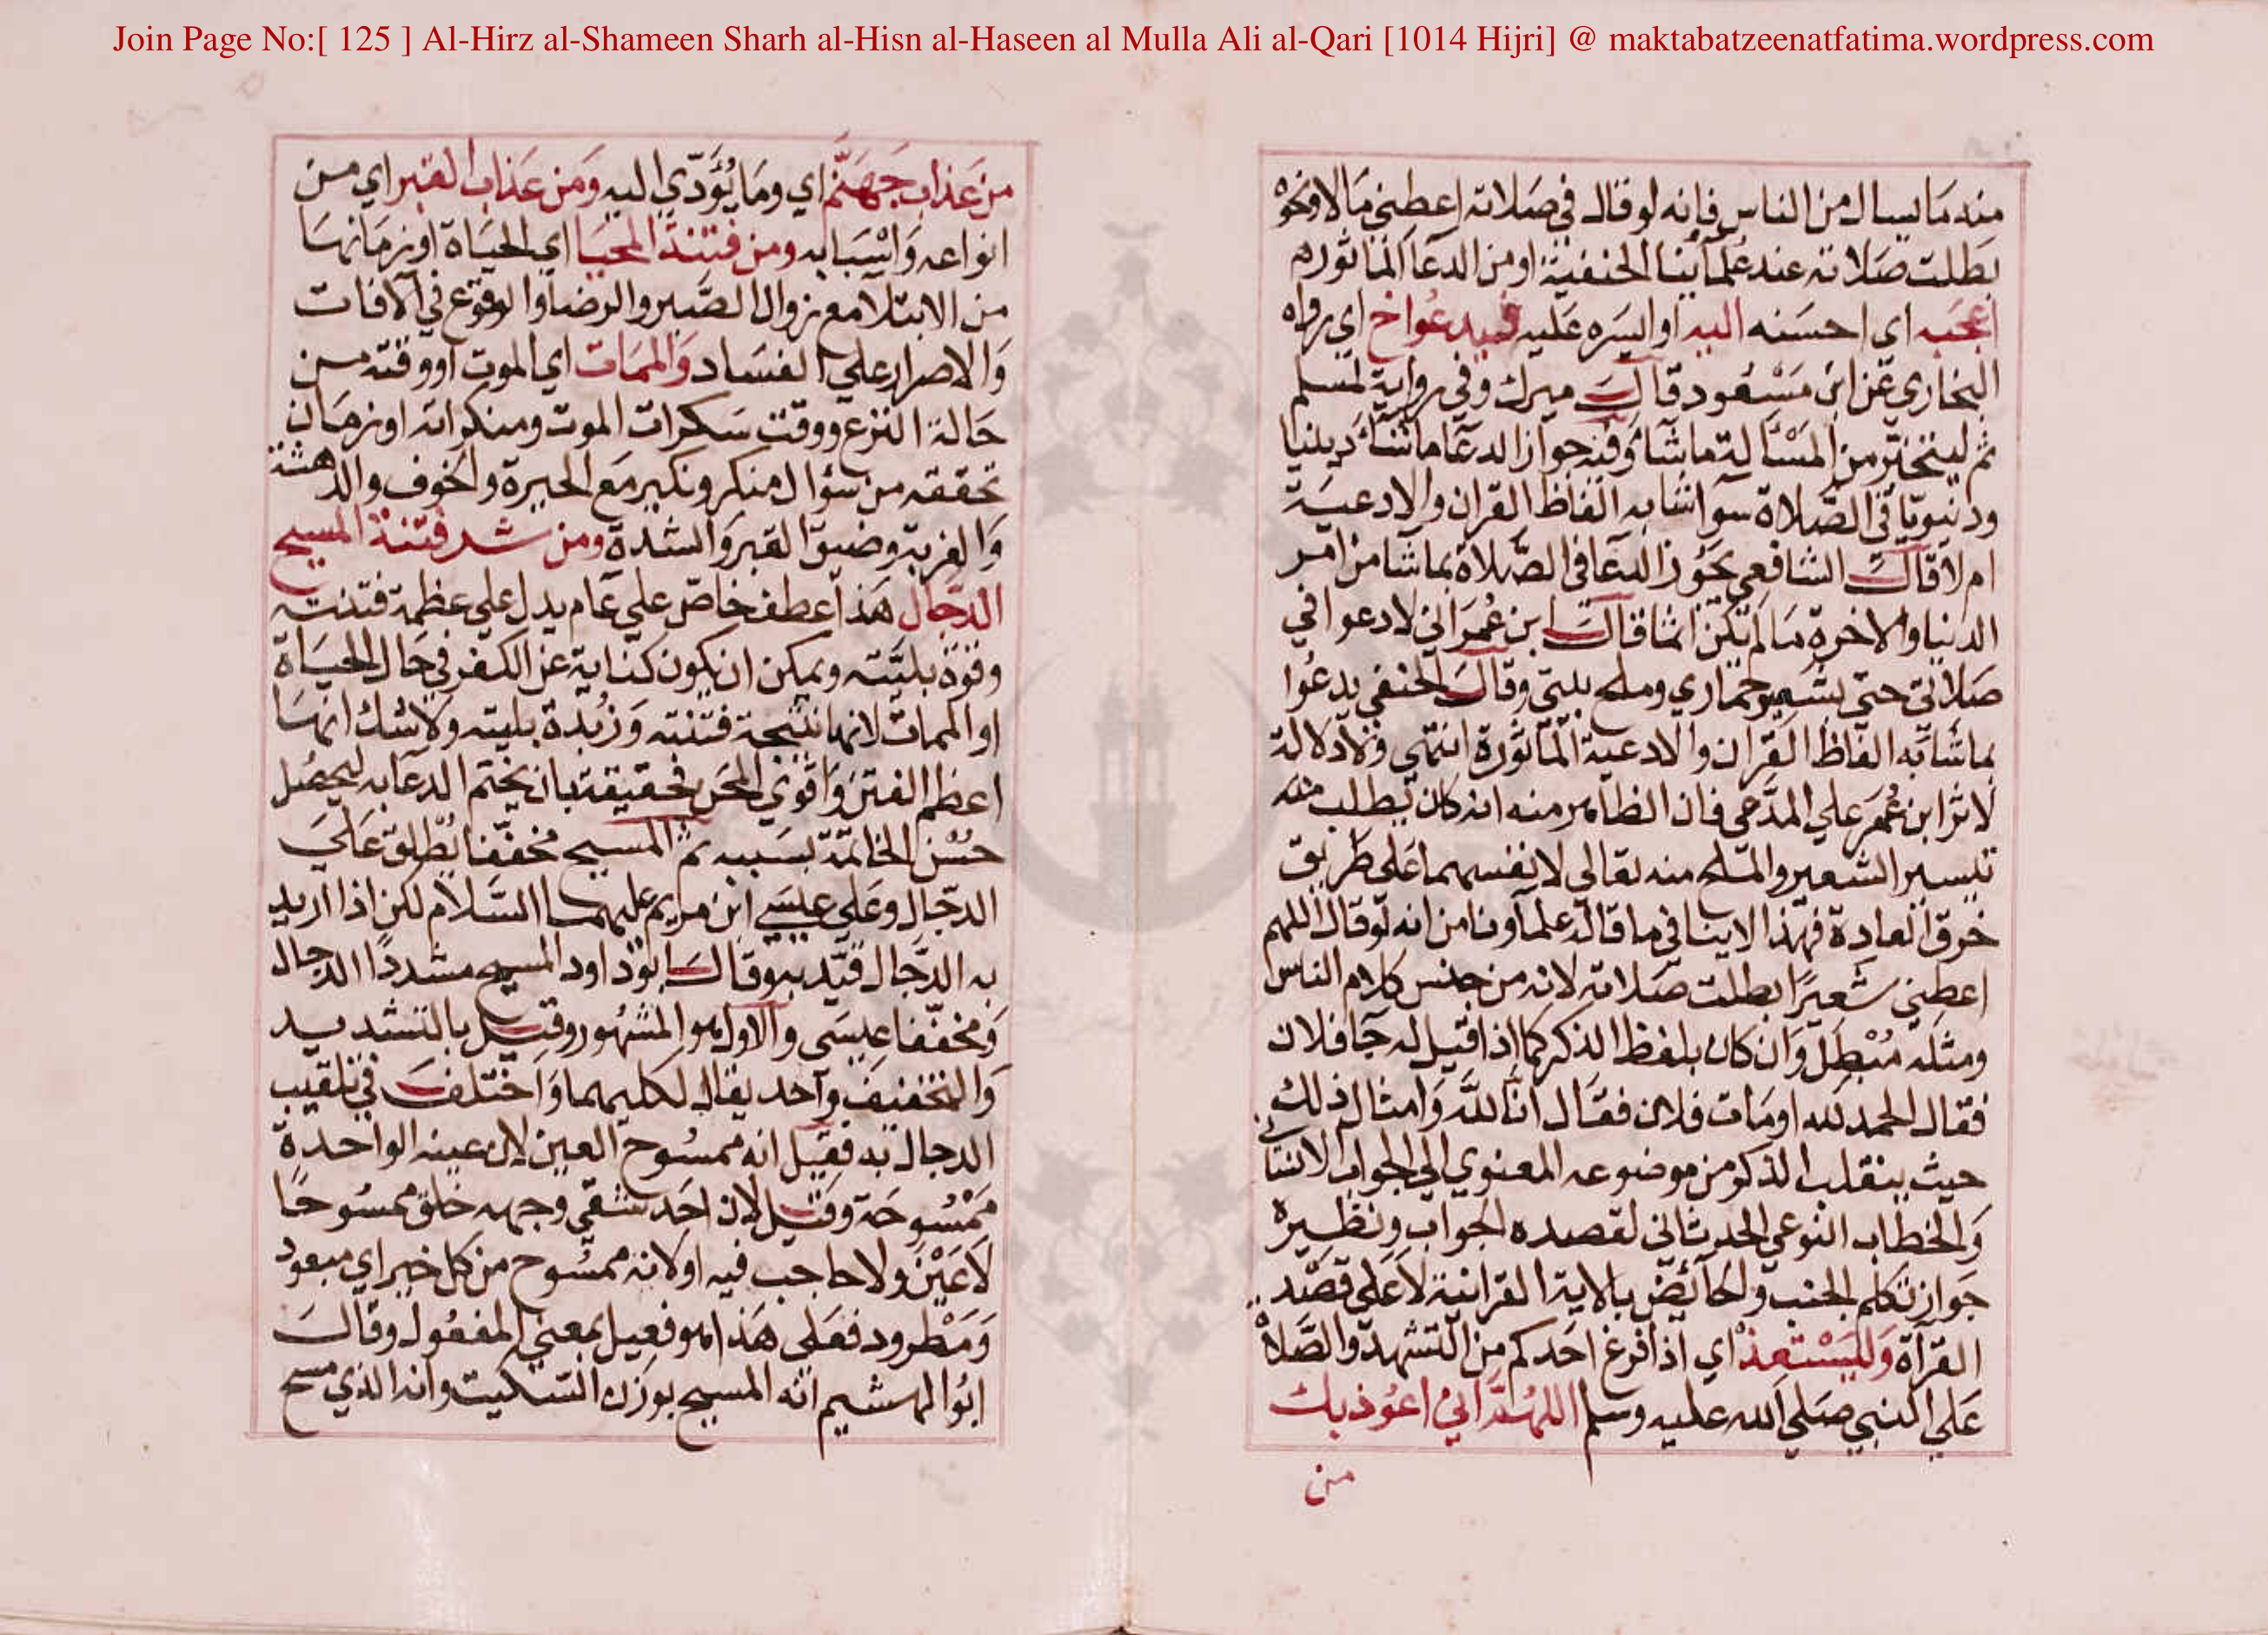 Join Page No:[ 125 ] Al-Hirz al-Shameen Sharh al-Hisn al-Haseen al Mulla Ali al-Qari [1014 Hijri] @ maktabatzeenatfatima.wordpress.com
منه ما يسال من الناس فانه لو قال في صلاته اعطني مالا ونحوه
بطلت صلاته عند علمآئنا الحنفية او من الدعآ الماثوره
اعجبه اي احسنه اليه او ايسره عليه فيدعو اخ اي رواه
البخاري عن ابن مسعود قال ميرك وفي رواية لمسلم
ثم ليتخير من المسألة ما شآء وفيه جواز الدعآ ما شآء دينيا
ودنيويا في الصلاة سوا شابه الفاظ القران والادعية
ام لا قال الشافعي يجوز الدعا في الصلاة بما شآ من امر
الدنيا والاخرة ما لم يكن اثما قال ابن عمر اني لادعوا في
صلاتي حتى بشعير حماري وملح بيتي وقال الحنفي يدعوا
بما شابه الفاظ القران والادعية الماثورة انتهى ولا دلالة
لاثر ابن عمر علي المدعي فان الظاهر منه انه كان يطلب منه
تيسير الشعير والملح منه تعالي لا نفسهما على طريق
خرق العادة فهذا لا ينافي ما قاله علمآونا من انه لو قال اللهم
اعطني شعيرًا بطلت صلاته لانه من جنس كلام الناس
ومثله مبطل وان كان بلفظ الذكر كما اذا قيل له جآ فلان
فقال الحمد لله او مات فلان فقال انا لله وامثال ذلك
حيث ينقلب الذكر من موضوعه المعنوي الي الجواب الانسآئي
والخطاب النوعي الحدثاني لقصده الجواب ونظيره
جواز تكلم الجنب والحآئض بالاية القرانية لا على قصد
القرآة وليستعذ اي اذا فرغ احدكم من التشهد والصلاة
علي النبي صلي الله عليه وسلم اللهم اني اعوذ بك
من
من عذاب جهنم اي وما يؤدي اليه ومن عذاب القبر اي من
انواعه واسبابه ومن فتنة المحيا اي الحياة او زمانها
من الابتلآ مع زوال الصبر والرضا والوقوع في الآفات
والاصرار علي الفساد والممات اي الموت او وقته من
حالة النزع ووقت سكرات الموت ومنكراته او زمان
تحققه من سؤال منكر ونكير مع الحيرة والخوف والدهشة
والغربة وضيق القبر والشدة ومن شر فتنة المسيح
الدجال هذا عطف خاص علي عام يدل علي عظمة فتنته
وقوة بليته ويمكن ان يكون كناية عن الكفر في حال الحياة
او الممات لانها نتيجة فتنته وزبدة بليته ولا شك انها
اعظم الفتن واقوي المحن فحقيقة بان يختم الدعآ به ليحصل
حسن الخاتمة بسببه ثم المسيح مخففا يطلق علي
الدجال وعلي عيسي ابن مريم عليهما السلام لكن اذا اريد
به الدجال قيد به وقال ابو داود المسيح مشددًا الدجال
ومخففا عيسى والاول هو المشهور وقيل بالتشديد
والتخفيف وآحد يقال لكليهما واختلف في تلقيب
الدجال به فقيل انه ممسوح العين لان عينه الواحدة
ممسوحة وقيل لان احد شقي وجهه خلق ممسوحا
لا عين ولا حاجب فيه او لانه ممسوح من كل خير اي مبعود
ومطرود فعلى هذا هو فعيل بمعني المفعول وقال
ابو الهشيم انه المسيح بوزن السكيت وانه الذي مسح